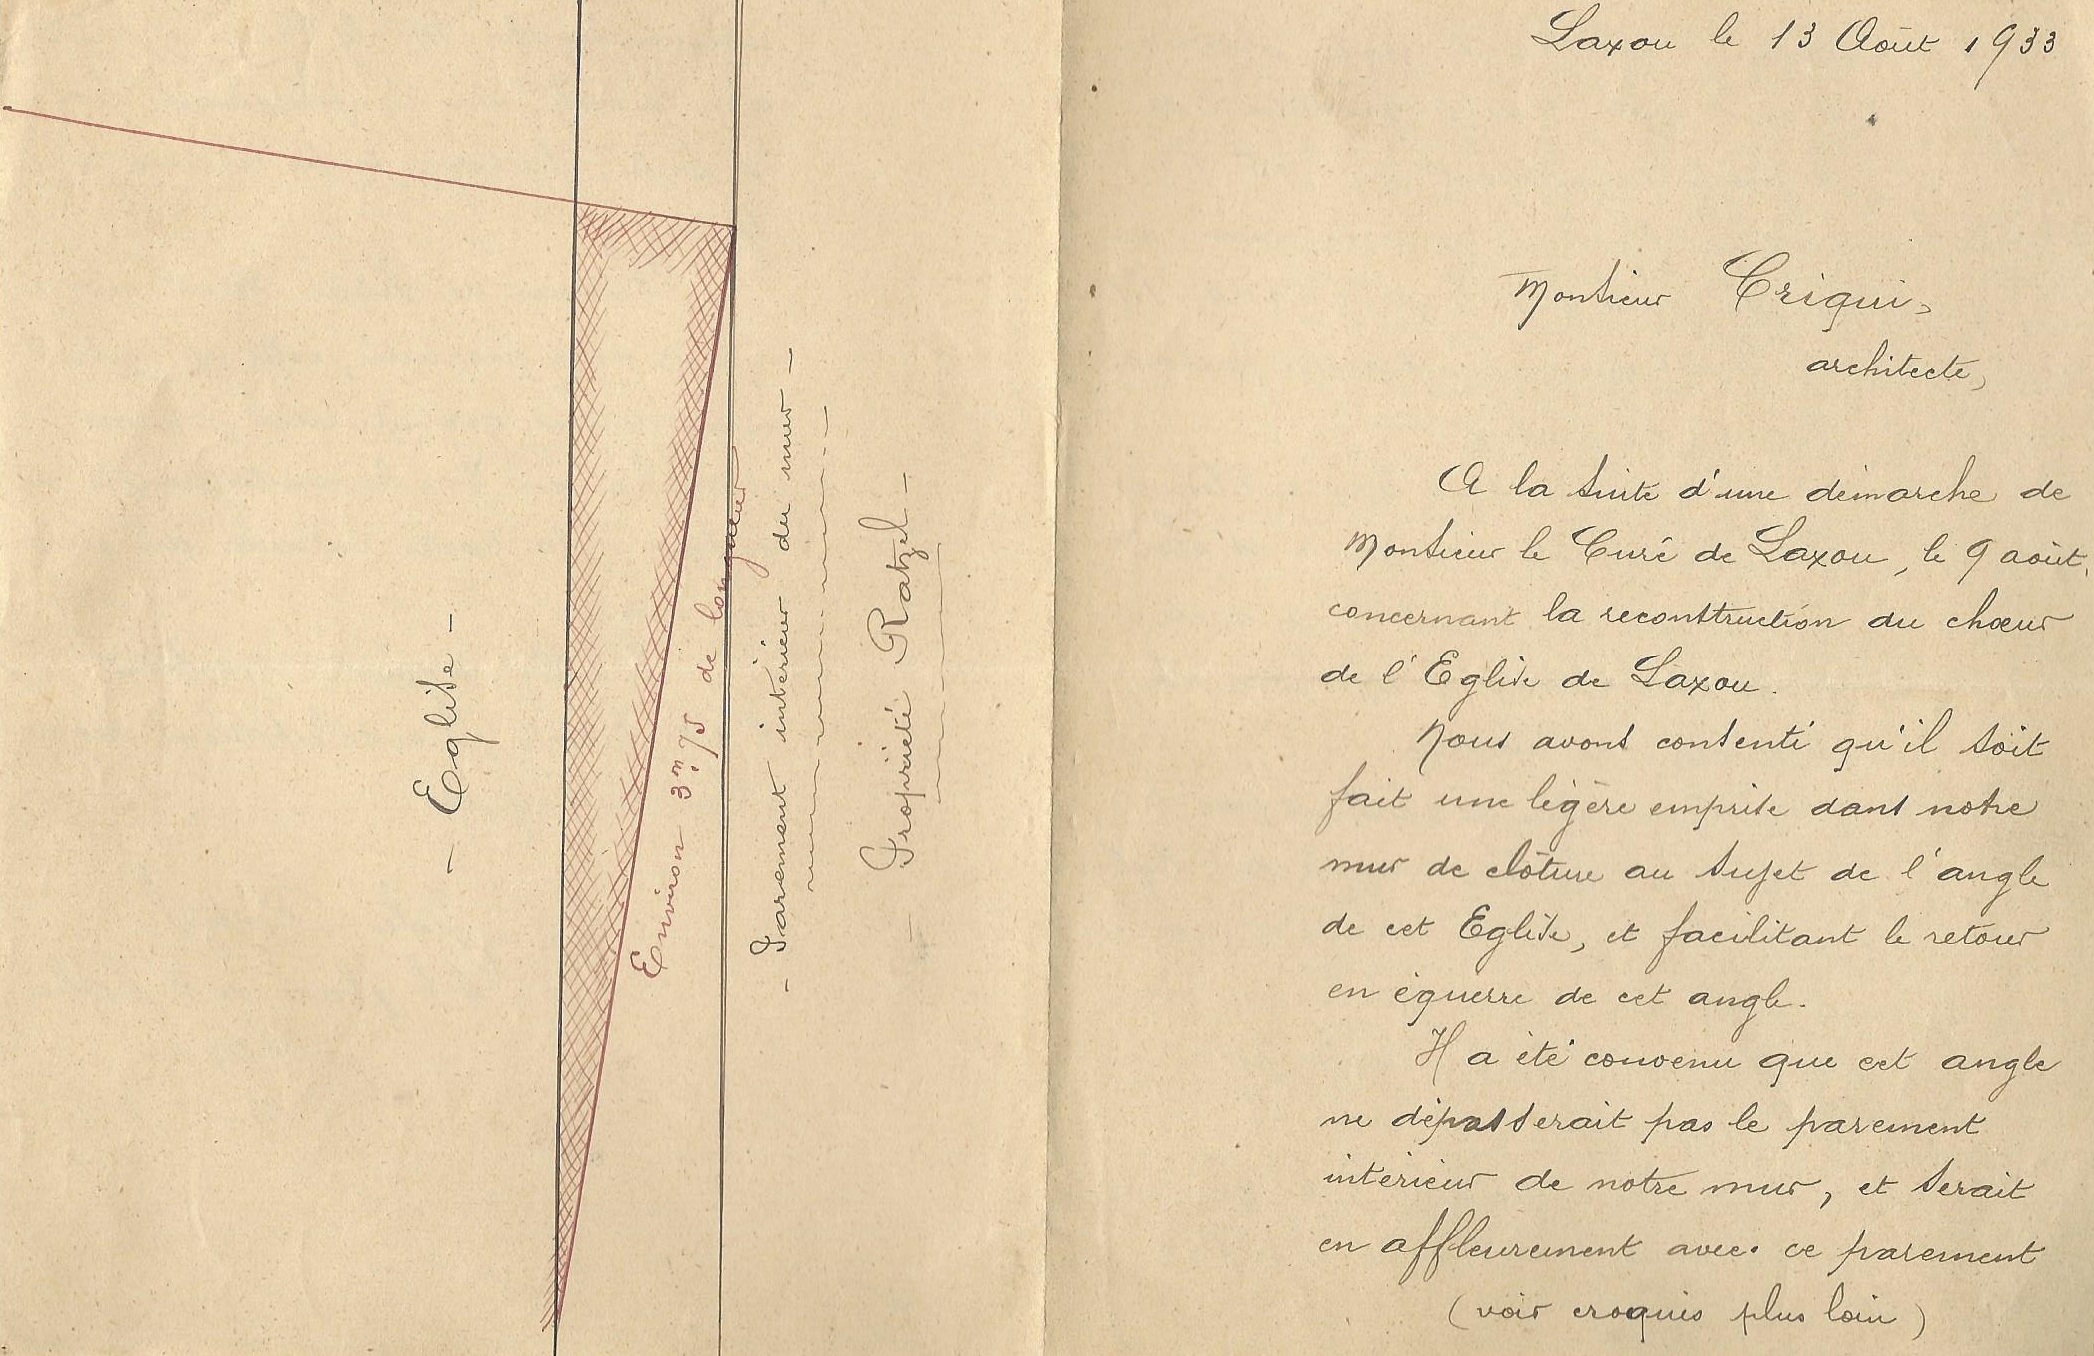 - Eglise -
Environ 3m,75 de longueur
- Parement intérieur du mur -
- Propriété Ratzel -
Laxou le 13 Août 1933
Monsieur Criqui,
architecte,
A la suite d'une démarche de
Monsieur le Curé de Laxou, le 9 août,
concernant la reconstruction du chœur
de l'Eglise de Laxou.
Nous avons consenti qu'il soit
fait une légère emprise dans notre
mur de clôture au sujet de l'angle
de cet Eglise, et facilitant le retour
en équerre de cet angle.
Il a été convenu que cet angle
ne dépasserait pas le parement
intérieur de notre mur, et serait
en affleurement avec ce parement
(voir croquis plus loin)